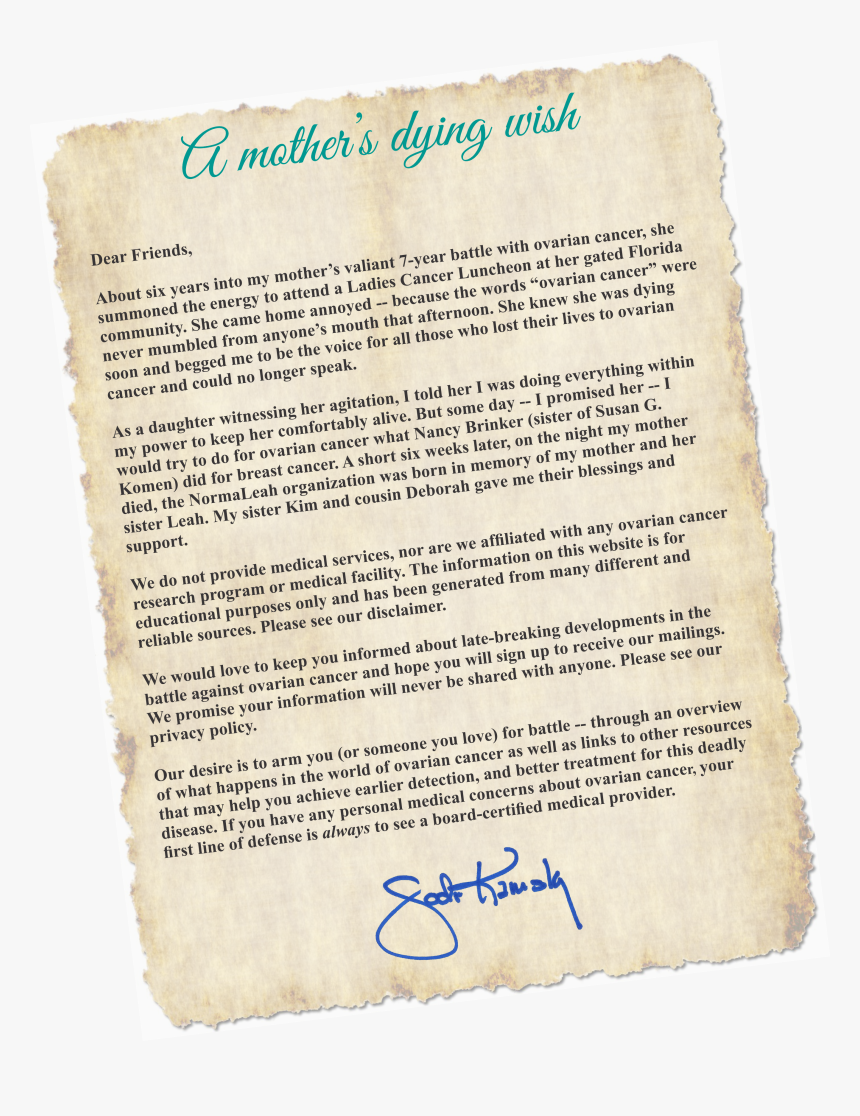 A mother's dying wish
Dear Friends,
About six years into my mother's valiant 7-year battle with ovarian cancer, she
summoned the energy to attend a Ladies Cancer Luncheon at her gated Florida
community. She came home annoyed -- because the words “ovarian cancer” were
never mumbled from anyone's mouth that afternoon. She knew she was dying
soon and begged me to be the voice for all those who lost their lives to ovarian
cancer and could no longer speak.
As a daughter witnessing her agitation, I told her I was doing everything within
my power to keep her comfortably alive. But some day -- I promised her -- I
would try to do for ovarian cancer what Nancy Brinker (sister of Susan G.
Komen) did for breast cancer. A short six weeks later, on the night my mother
died, the NormaLeah organization was born in memory of my mother and her
sister Leah. My sister Kim and cousin Deborah gave me their blessings and
support.
We do not provide medical services, nor are we affiliated with any ovarian cancer
research program or medical facility. The information on this website is for
educational purposes only and has been generated from many different and
reliable sources. Please see our disclaimer.
We would love to keep you informed about late-breaking developments in the
battle against ovarian cancer and hope you will sign up to receive our mailings.
We promise your information will never be shared with anyone. Please see our
privacy policy.
Our desire is to arm you (or someone you love) for battle -- through an overview
of what happens in the world of ovarian cancer as well as links to other resources
that may help you achieve earlier detection, and better treatment for this deadly
disease. If you have any personal medical concerns about ovarian cancer, your
first line of defense is always to see a board-certified medical provider.